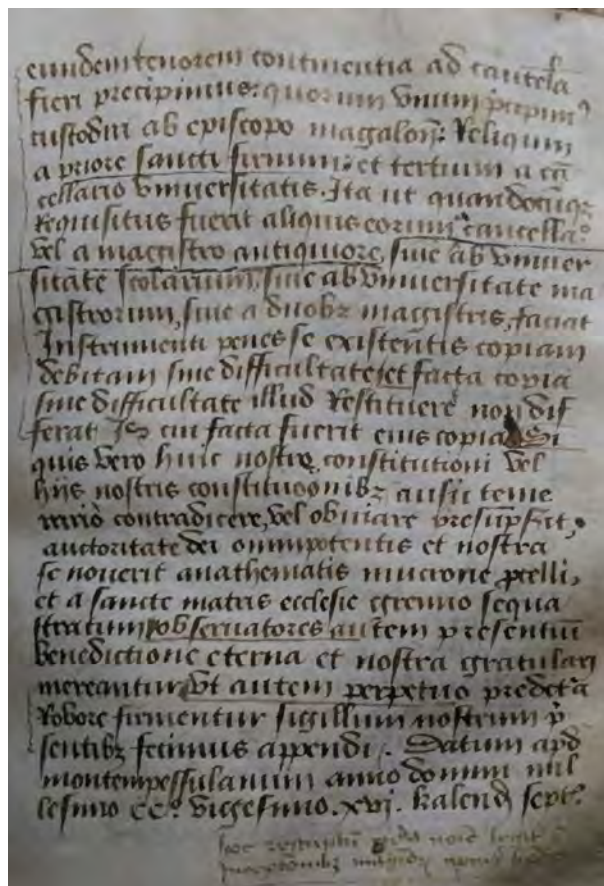 eundem tenorem continentia ad cautelā
fieri precipimus: quorum vnum p̄cipimꝰ
custodiri ab episcopo magaloñ: Reliquum
a priore sancti firmini: et tertium a cā
cellario vniuersitatis. Ita ut quandocūqꝫ
Requisitus fuerit aliquis eorum a cancella.º
vel a magistro antiquiore, siue ab vniuer
sitate scolarium, siue ab vniuersitate ma
gistrorum, siue a duobꝫ magistris, faciat
Instrumenti penes se existentis copiam
debitam sine difficultate, et facta copia
sine difficultate illud Restituere non dif
ferat Is cui facta fuerit eius copia. Si
quis vero huic nostre, constitutioni vel
hijs nostris constitucionibꝫ ausu teme
rario contradicere, vel obuiare presūpserit,
auctoritate dei omnipotentis et nostra
se nouerit anathematis mucrone ꝑcelli,
et a sancte matris ecclesie gremio sequa
stratum, obseruatores autem presentiū
benedictione eterna et nostra gratulari
mereantur, Vt autem perpetuo predcta
Robore firmentur sigillum nostrum p̄
sentibꝫ fecimus appendi. Datum apd
montempessulanum anno domini mil
lesimo CC.º vigesimo. xvi. kalend septꝭ.